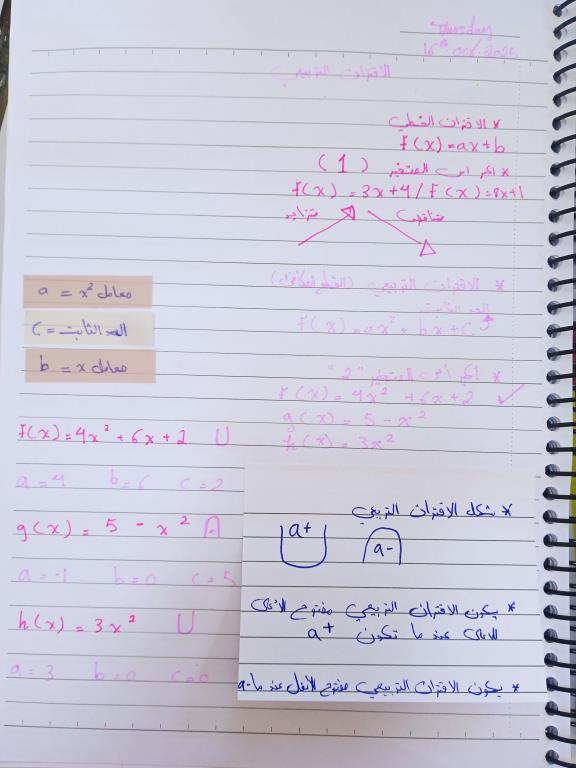 Thursday
16th.oct.2025
الاقتران التربيعي
* الاقتران الخطي
f(x)=ax+b
* اكبر اس المتغير (1)
f(x) = 3x+4 / f(x)=8x+1
متناقص
متزايد
* الاقتران التربيعي (القطع المكافئ)
الحد الثابت
f(x)=ax²+bx+c
* أكبر أس للمتغير "2"
f(x)=4x²+6x+2
g(x)=5-x²
h(x)=3x²
a = x² معامل
c = الحد الثابت
b = x معامل
f(x)=4x²+6x+2 U
a=4 b=6 c=2
g(x)= 5 - x²
a=-1 b=0 c=5
h(x)=3x² U
a=3 b=0 c=0
* شكل الاقتران التربيعي
a+
a-
* يكون الاقتران التربيعي مفتوح للأعلى
للأعلى عند ما تكون a+
* يكون الاقتران التربيعي مفتوح للأسفل عند ما a-